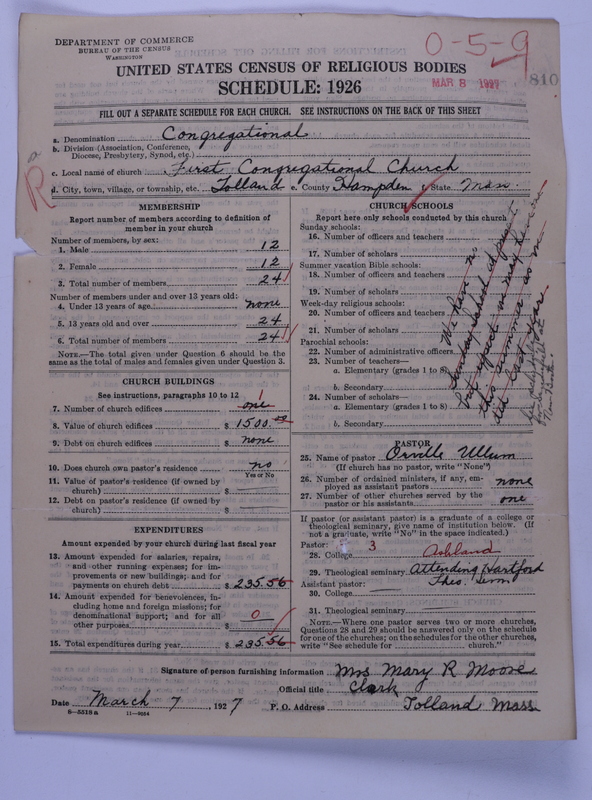 DEPARTMENT OF COMMERCE
BUREAU OF THE CENSUS
WASHINGTON
0-5-9
MAR 8 1927
810
UNITED STATES CENSUS OF RELIGIOUS BODIES
SCHEDULE: 1926
FILL OUT A SEPARATE SCHEDULE FOR EACH CHURCH. SEE INSTRUCTIONS ON THE BACK OF THIS SHEET
a. Denomination Congregational
b. Division (Association, Conference,
Diocese, Presbytery, Synod, etc.)
c. Local name of church First Congregational Church
d. City, town, village, or township, etc. Tolland e. County Hampden f. State Mass
R
MEMBERSHIP
Report number of members according to definition of
member in your church
Number of members, by sex:
1. Male 12
2. Female 12
3. Total number of members 24
Number of members under and over 13 years old:
4. Under 13 years of age none
5. 13 years old and over 24
6. Total number of members 24
NOTE.—The total given under Question 6 should be
same as the total of males and females given under Question 3.
CHURCH BUILDINGS
See instructions, paragraphs 10 to 12
7. Number of church edifices one 1
8. Value of church edifices $ 1500.00
9. Debt on church edifices $ none
10. Does church own pastor's residence no
Yes or No
11. Value of pastor's residence (if owned by
church) $
12. Debt on pastor's residence (if owned by
church) $
EXPENDITURES
Amount expended by your church during last fiscal year
13. Amount expended for salaries, repairs,
and other running expenses; for im-
provements or new buildings; and for
payments on church debt $ 235.56
14. Amount expended for benevolences, in-
cluding home and foreign missions; for
denominational support; and for all
other purposes $ 0
15. Total expenditures during year $ 235.56
CHURCH SCHOOLS
Report here only schools conducted by this church
Sunday schools:
16. Number of officers and teachers
17. Number of scholars
Summer vacation Bible schools:
18. Number of officers and teachers
19. Number of scholars
Week-day religious schools:
20. Number of officers and teachers
21. Number of scholars
Parochial schools:
22. Number of administrative officers
23. Number of teachers—
a. Elementary (grades 1 to 8)
b. Secondary
24. Number of scholars—
a. Elementary (grades 1 to 8)
b. Secondary
We have no
Sunday School at present
but expect we may have one
this summer as we
did last year
PASTOR
25. Name of pastor Orville Ullum
(If church has no pastor, write "None")
26. Number of ordained ministers, if any, em-
ployed as assistant pastors none
27. Number of other churches served by the
pastor or his assistants one
If pastor (or assistant pastor) is a graduate of a college or
theological seminary, give name of institution below. (If
not a graduate, write "No" in the space indicated.)
Pastor: 3
28. College Ashland
29. Theological seminary Attending Hartford
Theo. Sem
Assistant pastor:
30. College
31. Theological seminary
NOTE.—Where one pastor serves two or more churches,
Questions 28 and 29 should be answered only on the schedule
for one of the churches; on the schedules for the other churches,
write "See schedule for church."
Signature of person furnishing information Mrs Mary R Moore
Official title Clerk
Date March 7, 1927 P. O. Address Tolland Mass
8—5518a 11—9054